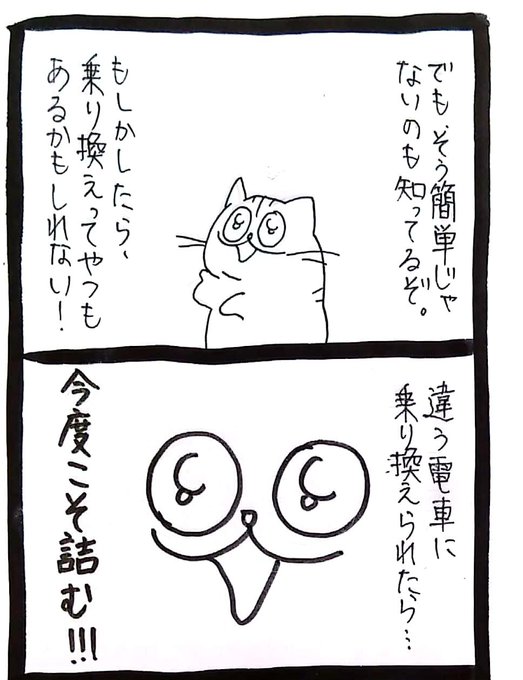 でも、そう簡単じゃ
ないのも知ってるぞ。
もしかしたら、
乗り換えってやつも
あるかもしれない!
違う電車に
乗り換えられたら…
今度こそ詰む!!!